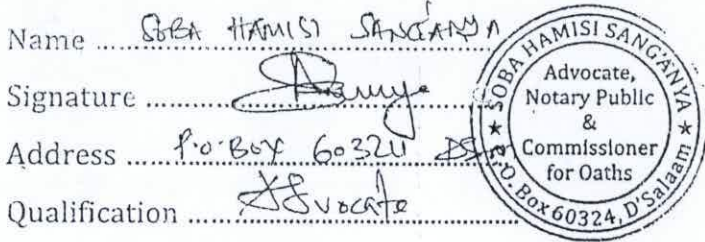 Name ... SOBA HAMISI SANGANYA
Signature ...
Address ... P.O. BOX 60324 DSM
Qualification ... Advocate
SOBA HAMISI SANG'ANYA
Advocate,
Notary Public
&
Commissioner
for Oaths
★ P.O. Box 60324, D'Salaam ★